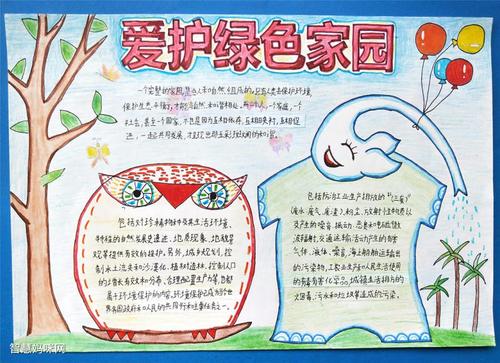 爱护绿色家园
一个完整的家园,是由人和自然组成的,只有人类去保护环境,
保护生态平衡了,才能与自然和谐相处。而个人,一个家庭,一个
社会,甚至一个国家,不也是因为互相依存,互相关爱,互相促
进,一起共同发展,才
包括对珍稀物种及其生活环境、
特殊的自然发展史遗迹、地质现象、地貌景
观等提供有效的保护。另外,城乡规划,控
制水土流失和沙漠化、植树造林、控制人口
的增长和分布、合理配置生产力等,都
属于环境保护的内容。环境保护已成为当今世
界各国政府和人民的共同行动和主要任务之一。
包括防治工业生产排放的“三废”
(废水、废气、废渣)、粉尘、放射性物质以
及产生的噪音、振动、恶臭和电磁微
波辐射,交通运输活动产生的有害
气体、液体、噪音,海上船舶运输排出
的污染物,工农业生产和人民生活使用
的有毒有害化学品,城镇生活排放的
烟尘、污水和垃圾等造成的污染。
智慧妈咪网